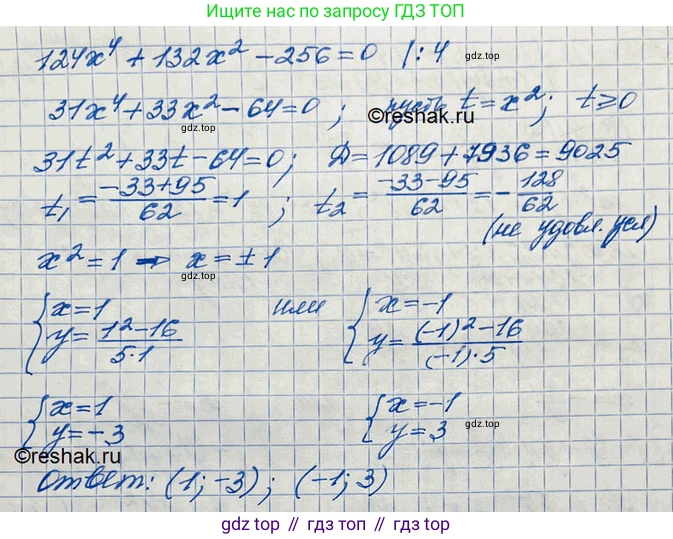 Ищите нас по запросу ГДЗ ТОП
124x⁴ + 132x² - 256 = 0 |: 4
gdz.top
31x⁴ + 33x² - 64 = 0 ; пусть t = x²; t ≥ 0
©reshak.ru
gdz.top
31t² + 33t - 64 = 0; Д = 1089 + 7936 = 9025
t₁ = (-33+95)/62 = 1 ; t₂ = (-33-95)/62 = -128/62
gdz.top
(не удовл. усл)
x² = 1 → x = ± 1
gdz.top
{ x = 1 или { x = -1
{ y = (1² - 16)/(5·1) { y = ((-1)² - 16)/((-1)·5)
gdz.top
{ x = 1 { x = -1
{ y = -3 { y = 3
gdz.top
©reshak.ru
Ответ: (1; -3) ; (-1; 3)
gdz top // гдз топ // gdz.top